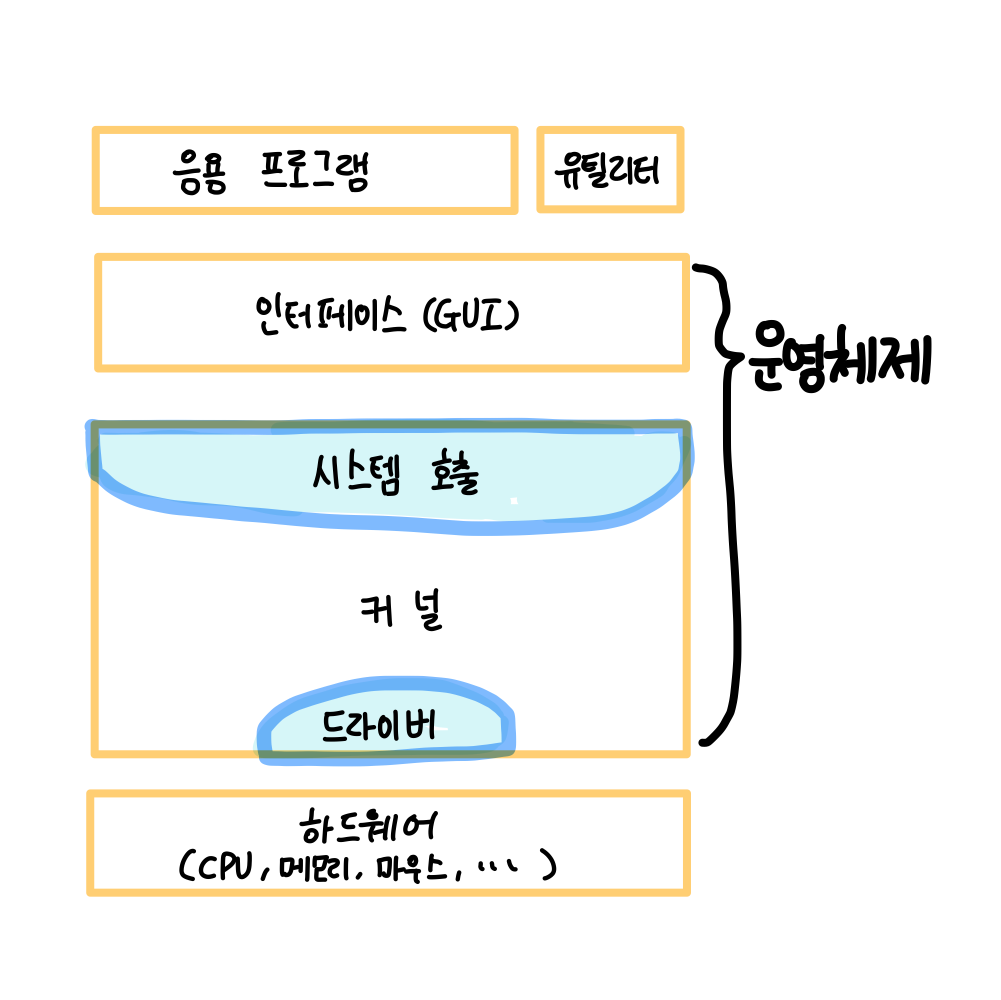 응용 프로그램
유틸리터
인터페이스 (GUI)
운영체제
시스템 호출
커널
드라이버
하드웨어
(CPU, 메모리, 마우스, ... )